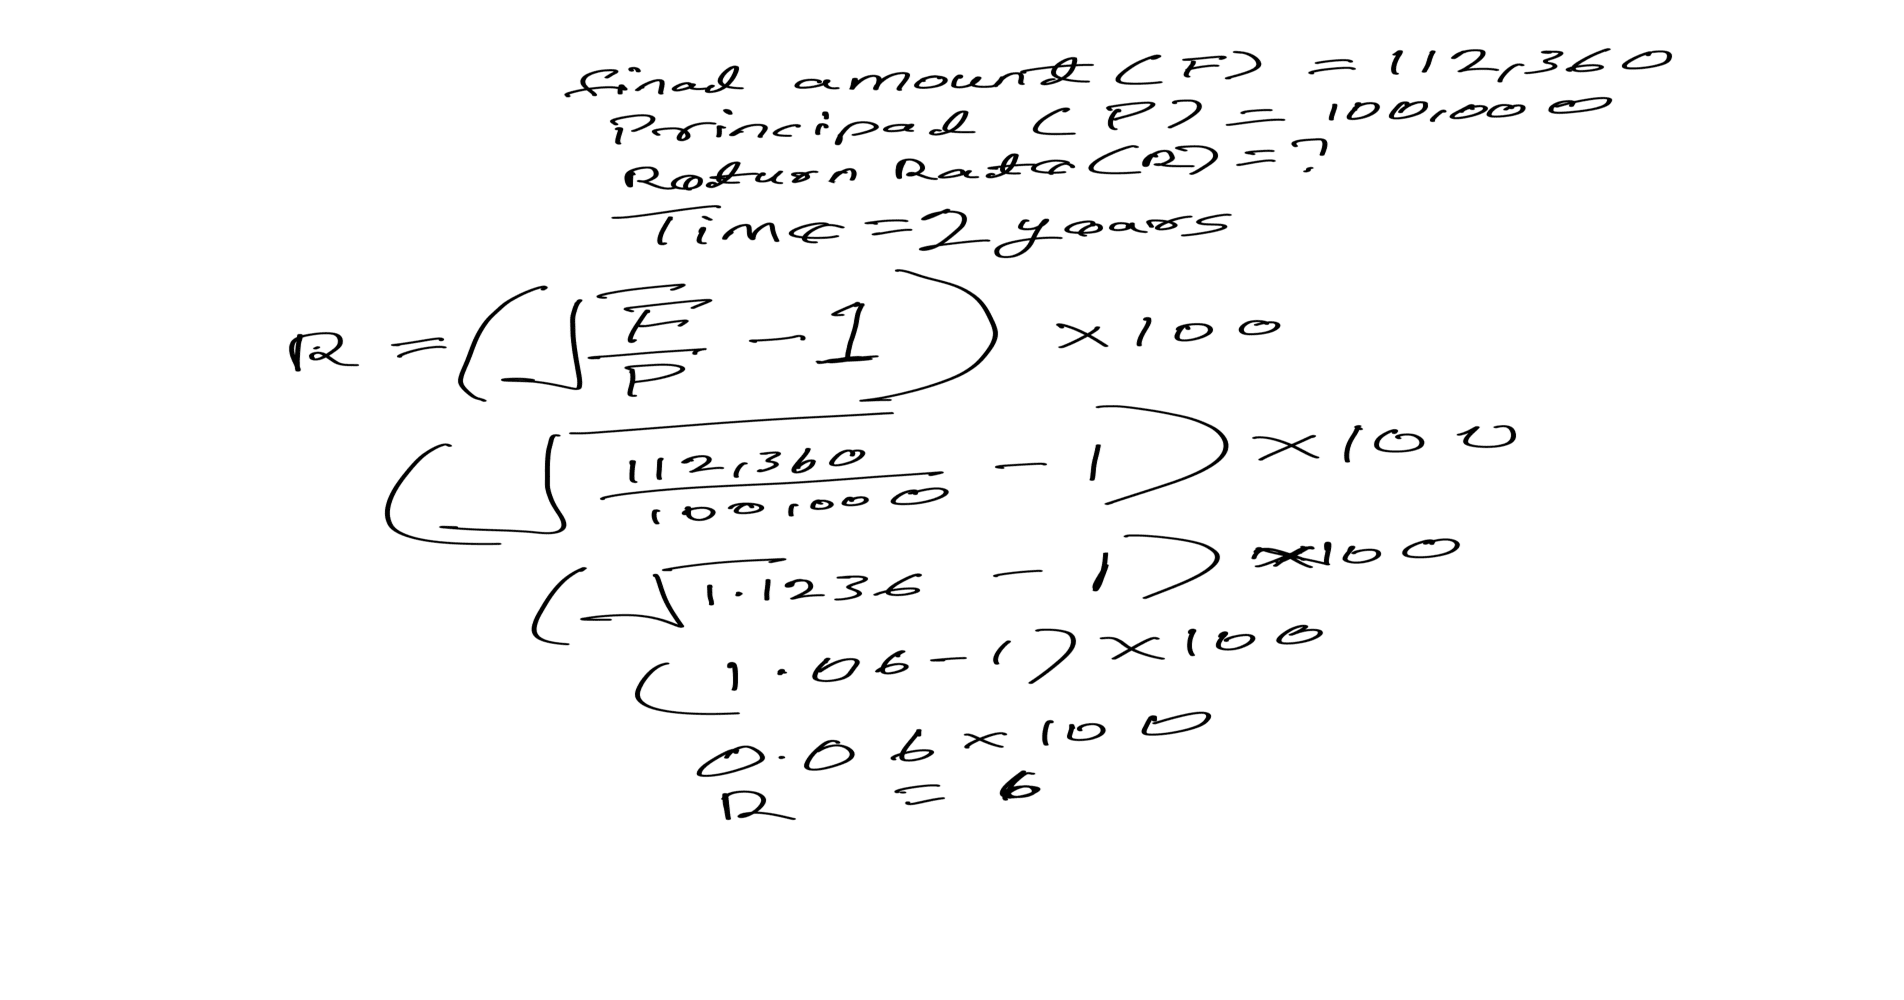 final amount (F) = 112,360
Principal (P) = 100,000
Return Rate (R) = ?
Time = 2 years
R = (√F/P - 1) × 100
(√112,360/100,000 - 1) × 100
(√1.1236 - 1) × 100
(1.06 - 1) × 100
0.06 × 100
R = 6